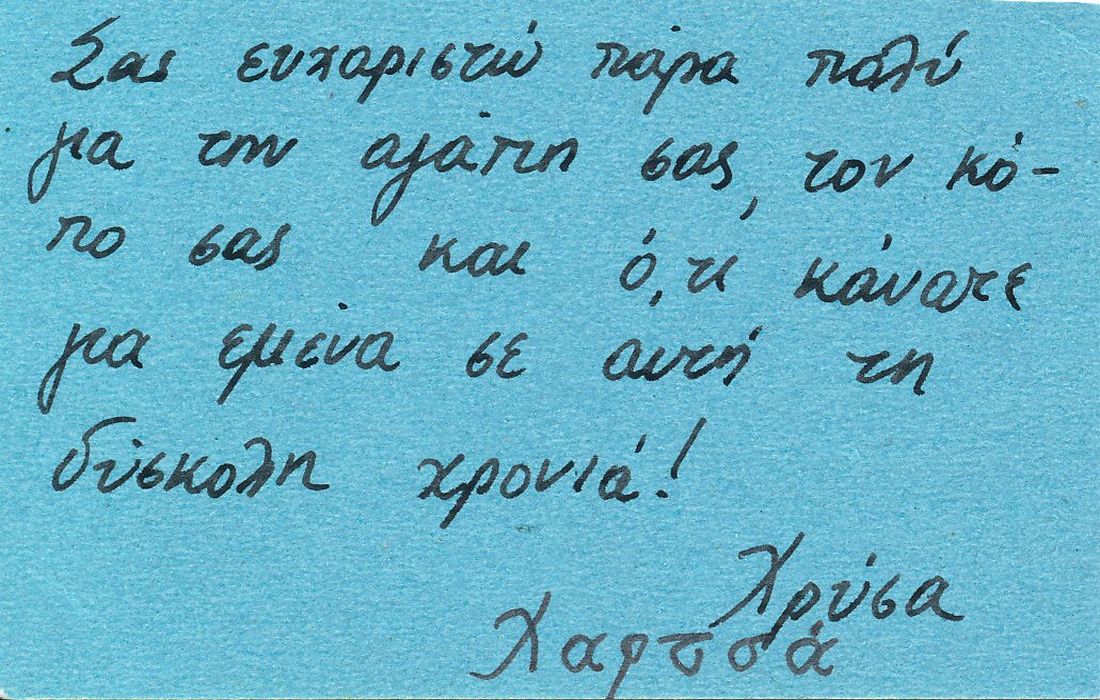 Σας ευχαριστώ πάρα πολύ
για την αγάπη σας, τον κό-
πο σας και ό,τι κάνατε
για εμένα σε αυτή τη
δύσκολη χρονιά!
Χρύσα
Χαφτσά